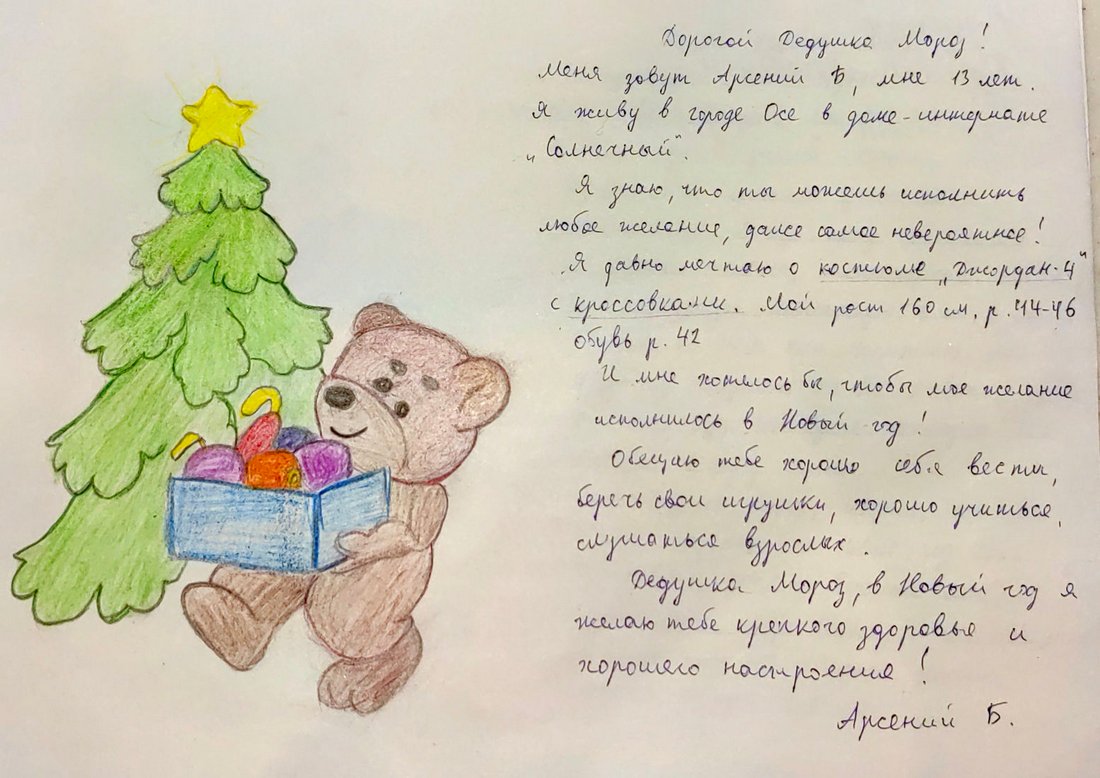 Дорогой Дедушка Мороз!
Меня зовут Арсений Б, мне 13 лет.
Я живу в городе Осе в доме-интернате
„Солнечный".
Я знаю, что ты можешь исполнить
любое желание, даже самое невероятное!
Я давно мечтаю о костюме „Джордан-4"
с кроссовками. Мой рост 160 см, р. 44-46
обувь р. 42
И мне хотелось бы, чтобы мое желание
исполнилось в Новый год!
Обещаю тебе хорошо себя вести,
беречь свои игрушки, хорошо учиться,
слушаться взрослых.
Дедушка Мороз, в Новый год я
желаю тебе крепкого здоровья и
хорошего настроения!
Арсений Б.